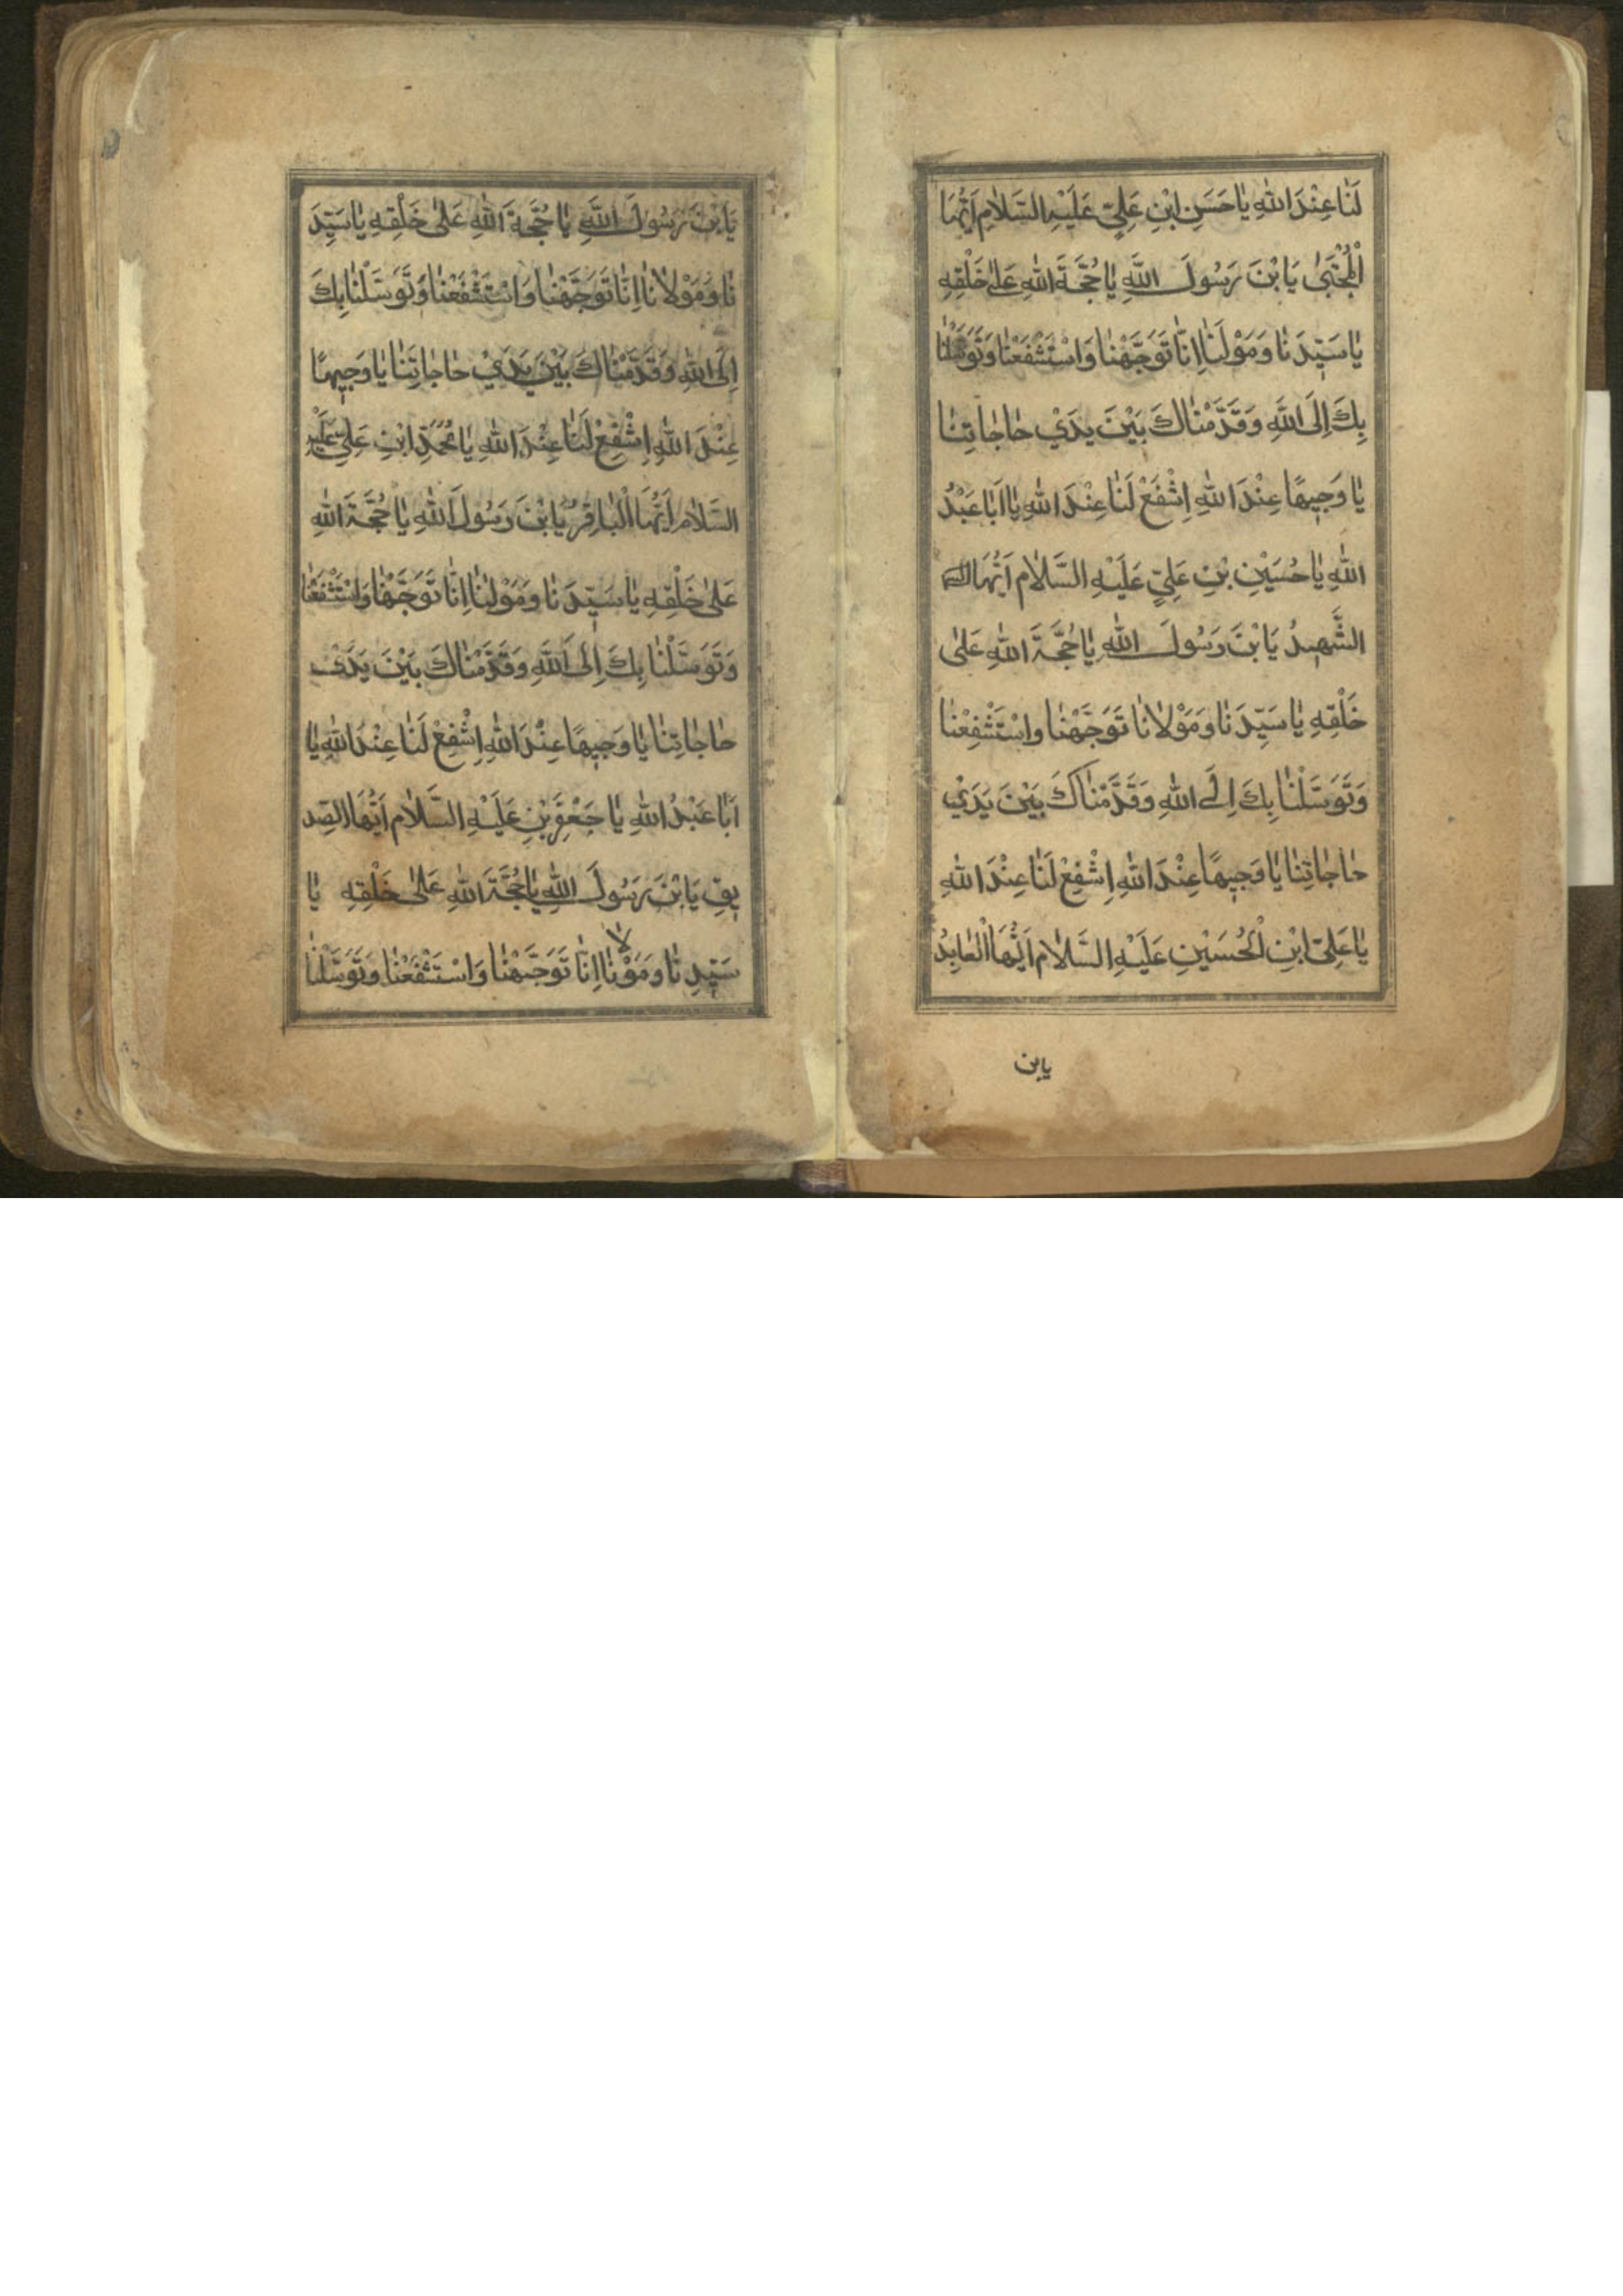 لَنٰا عِنْدَ اللهِ يٰا حَسَنِ ابْنِ عَلِيٍّ عَلَيْهِ السَّلٰامِ اَيُّهَا
الْمُجْتَبىٰ يَا بْنَ رَسُولَ اللَّهِ يٰا حُجَّةَ اللهِ عَلىٰ خَلْقِهِ
يٰا سَيِّدَ نٰا وَ مَوْلَنٰا اِنّٰا تَوَجَّهْنٰا وَاسْتَشْفَعْنٰا وَتَوَسَّلْنٰا
بِكَ اِلَى اللَّهِ وَقَدَّمْنٰاكَ بَيْنَ يَدَيْ حٰاجٰاتِنٰا
يٰا وَجِيهًا عِنْدَ اللهِ اِشْفَعْ لَنٰا عِنْدَ اللهِ يٰا اَبٰا عَبْدُ
اللهِ يٰا حُسَيْنِ بْنِ عَلِيٍّ عَلَيْهِ السَّلٰام اَيُّهَا
الشَّهِيدُ يَا بْنَ رَسُولَ اللهِ يٰا حُجَّةَ اللهِ عَلىٰ
خَلْقِهِ يٰا سَيِّدَ نٰا وَ مَوْلٰانٰا تَوَجَّهْنٰا وَاسْتَشْفِعْنٰا
وَتَوَسَّلْنٰا بِكَ اِلَى اللهِ وَقَدَّمْنٰاكَ بَيْنَ يَدَيْ
حٰاجٰاتِنٰا يٰا وَجِيهًا عِنْدَ اللهِ اِشْفِعْ لَنٰا عِنْدَ اللهِ
يٰا عَلِيِّ ابْنِ الْحُسَيْنِ عَلَيْهِ السَّلٰام اَيُّهَا الْعٰابِدُ
يابن
يَا بْنَ رَسُولَ اللَّهِ يٰا حُجَّةَ اللهِ عَلىٰ خَلْقِهِ يٰا سَيِّدَ
نٰا وَ مَوْلٰانٰا اِنّٰا تَوَجَّهْنٰا وَاسْتَشْفَعْنٰا وَتَوَسَّلْنٰا بِكَ
اِلَى اللهِ وَقَدَّمْنٰاكَ بَيْنَ يَدَيْ حٰاجٰاتِنٰا يٰا وَجِيهًا
عِنْدَ اللهِ اِشْفِعْ لَنٰا عِنْدَ اللهِ يٰا مُحَمَّدِ ابْنِ عَلِيٍّ عَلَيْهِ
السَّلٰام اَيُّهَا الْبٰاقِرُ يَا بْنَ رَسُولَ اللهِ يٰا حُجَّةَ اللهِ
عَلىٰ خَلْقِهِ يٰا سَيِّدَ نٰا وَ مَوْلٰنٰا اِنّٰا تَوَجَّهْنٰا وَاسْتَشْفَعْنٰا
وَتَوَسَّلْنٰا بِكَ اِلَى اللهِ وَقَدَّمْنٰاكَ بَيْنَ يَدَيْ
حٰاجٰاتِنٰا يٰا وَجِيهًا عِنْدَ اللهِ اِشْفِعْ لَنٰا عِنْدَ اللهِ يٰا
اَبٰا عَبْدُ اللهِ يٰا جَعْفَرِ بْنِ عَلَيْهِ السَّلٰام اَيُّهَا الصِّد
يقِ يَا بْنَ رَسُولَ اللهِ يٰا حُجَّةَ اللهِ عَلىٰ خَلْقِهِ يٰا
سَيِّدِ نٰا وَ مَوْلانٰا اِنّٰا تَوَجَّهْنٰا وَاسْتَشْفَعْنٰا وَتَوَسَّلْنٰا